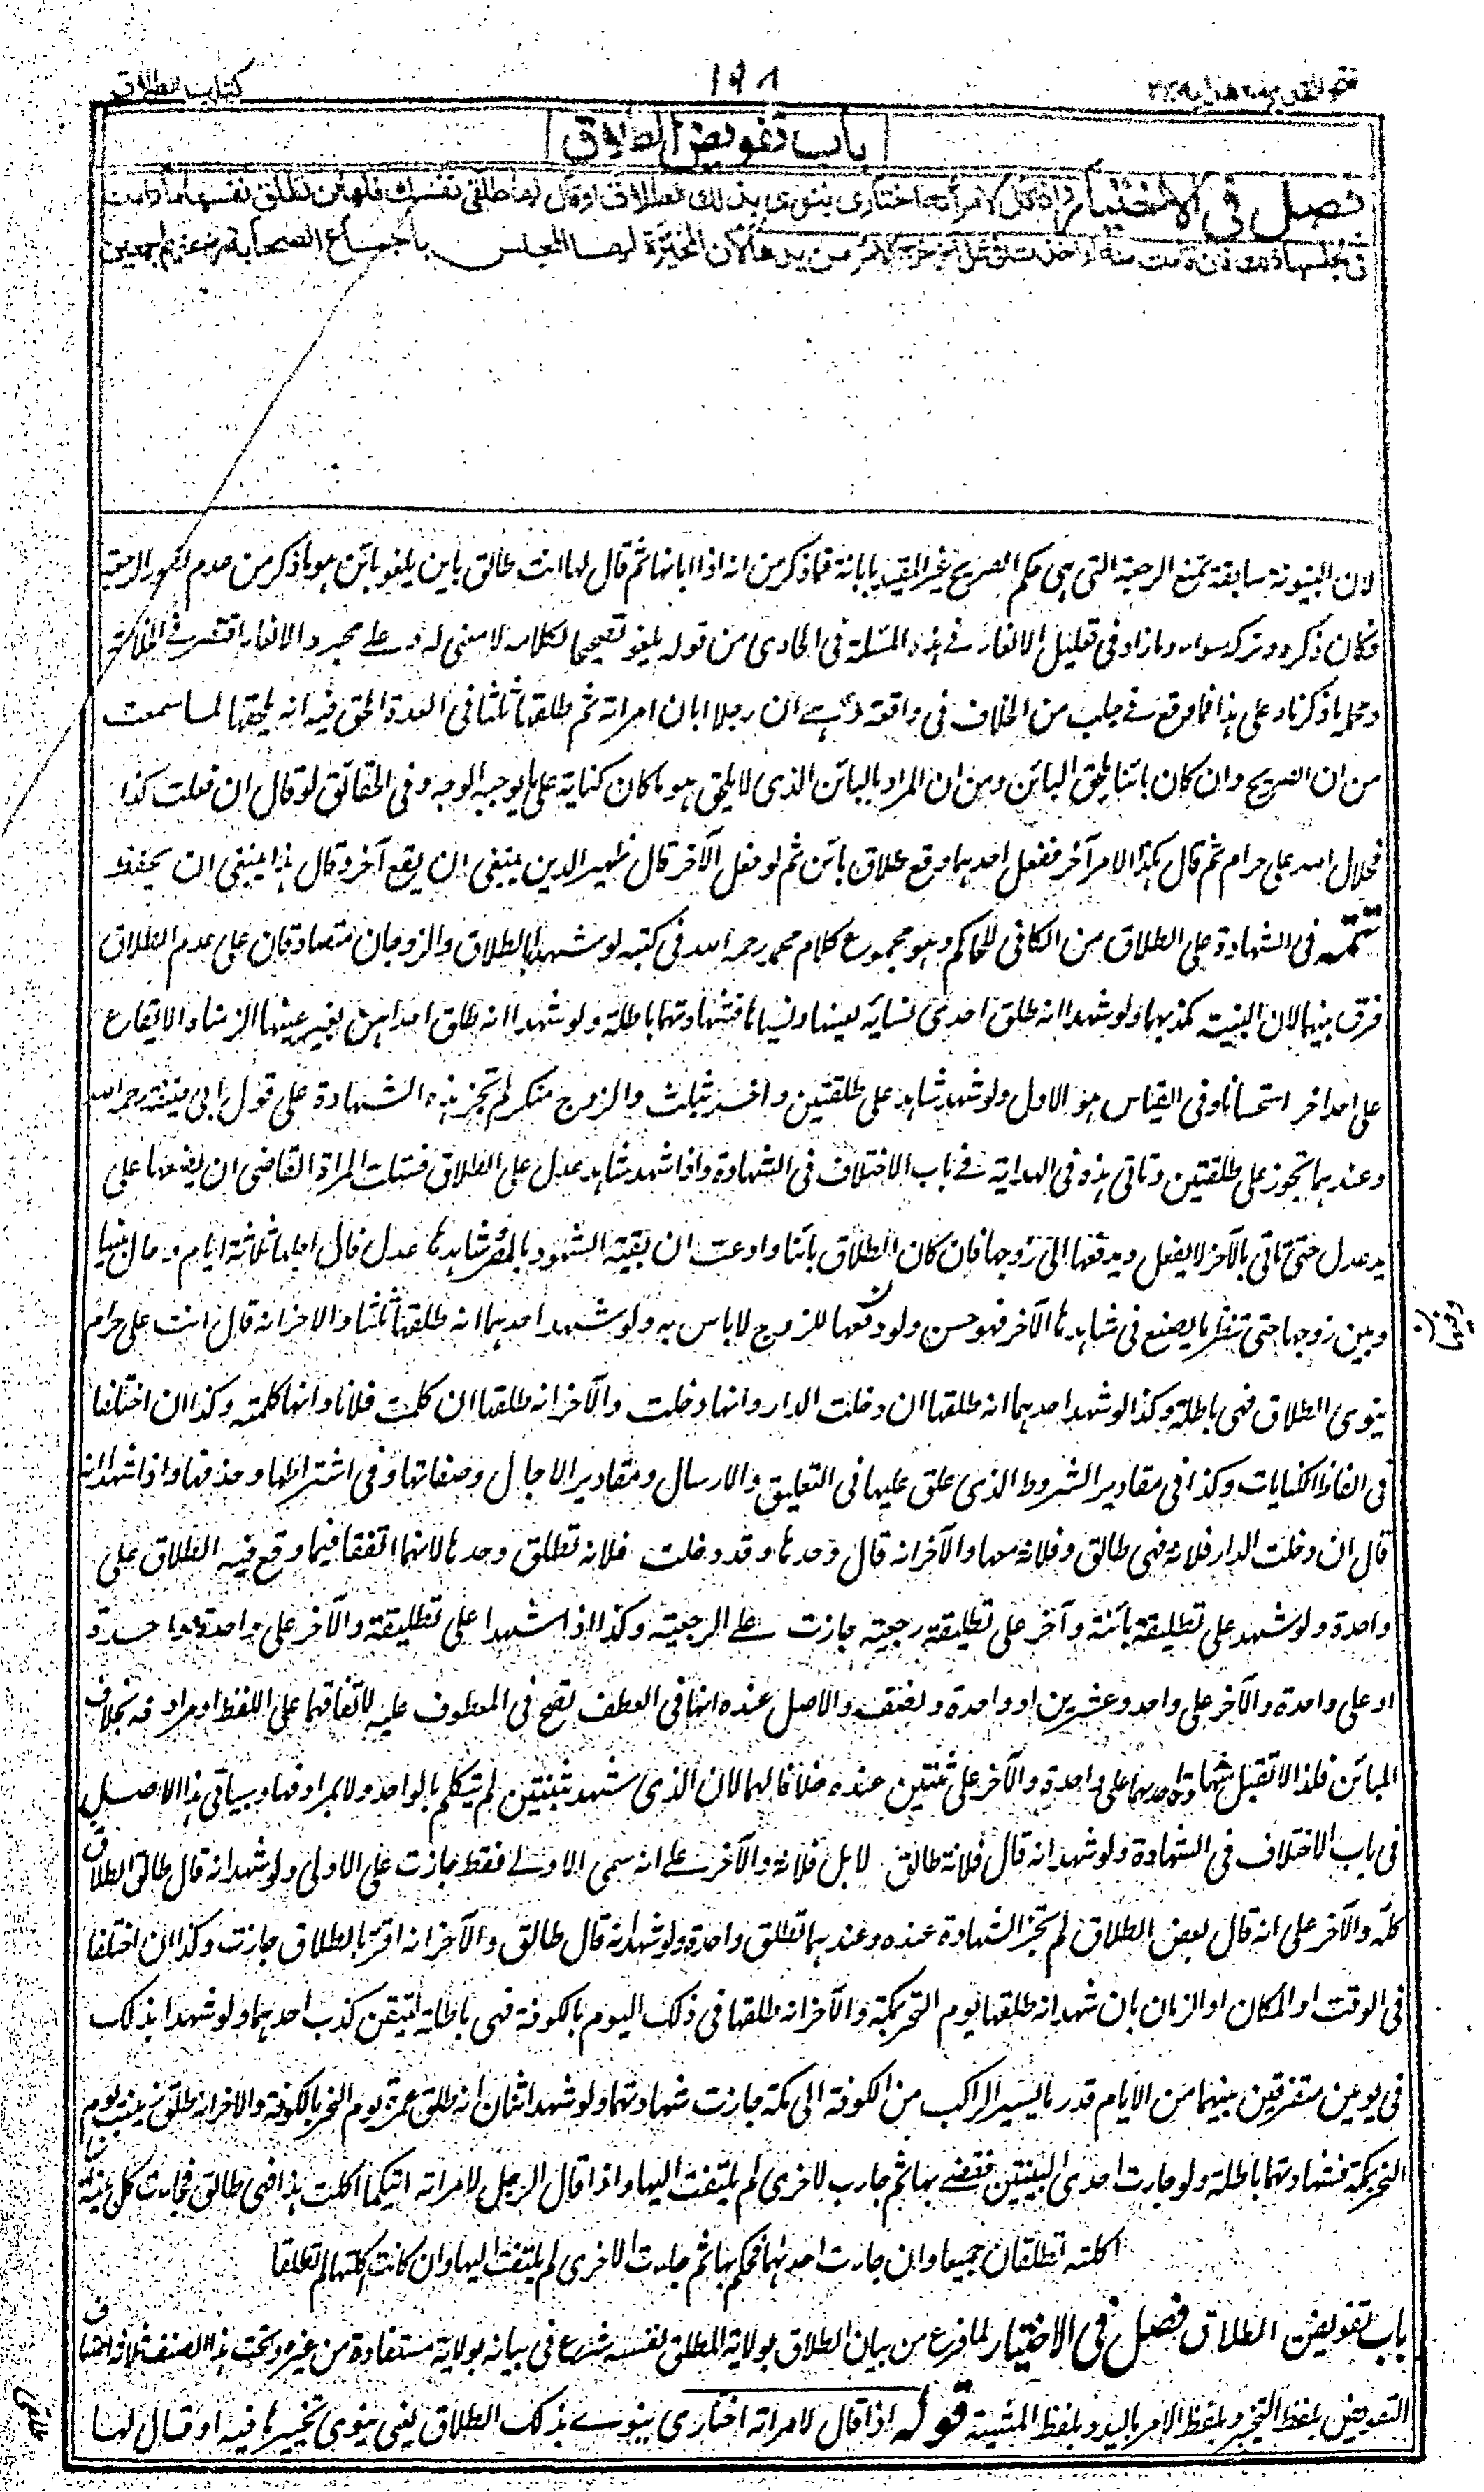 كتاب الطلاق
۱۹۸
فتح القدير مع هدايه ج۲
باب تفويض الطلاق
فصل في الاختيار واذا قال لامرأته اختاري ينوي بذلك الطلاق او قال لها طلقي نفسك فلها ان تطلق نفسها ما دامت
في مجلسها ذلك فان قامت منه او اخذت في عمل اخر خرج الامر من يدها لان المخيرة لها المجلس باجماع الصحابة رضي عنهم اجمعين
لان البينونة سابقة تمنع الرجعة التي هي حكم الصريح غير المقيد بابانة فما ذكر من انه اذا ابانها ثم قال لها انت طالق باين يلغو بائن هو ما ذكر من عدم تصور الرجعة
فكان ذكره وتركه سواء وما زاد في تعليل الالغاء في هذه المسئلة في الحاوى من قوله يلغو تصحيحا لكلامه لا معنى له وعلى مجرد الالغاء اقتصر في الخلاصة
ومحمله ما ذكرنا وعلى هذا فما وقع في حلب من الخلاف في واقعة هي ان رجلا ابان امراته ثم طلقها ثلثا في العدة الحق فيه انه يلحقها لما سمعت
من ان الصريح وان كان بائنا يلحق البائن ومن ان المراد بالبائن الذى لا يلحق هو ما كان كناية على ما يوجبه الوجه وفى الحقائق لو قال ان فعلت كذا
فحلال الله على حرام ثم قال هكذا لامر آخر ففعل احدهما وقع طلاق بائن ثم لو فعل الآخر قال ظهير الدين ينبغى ان يقع آخر وقال هذا ينبغى ان يحفظ
تتمه فى الشهادة على الطلاق من الكافى للحاكم وهو مجموع كلام محمد رحمه الله فى كتبه لو شهدا بالطلاق والزوجان متصادقان على عدم الطلاق
فرق بينهما لان البينة تكذبهما ولو شهدا انه طلق احدى نسائه بعينها ونسياها فشهادتهما باطلة ولو شهدا انه طلق احداهن بغير عينها الزمناه الايقاع
على احداهن استحسانا وفى القياس هو الاول ولو شهد شاهد على طلقتين واخر بثلث والزوج منكر لم تجز هذه الشهادة على قول ابى حنيفة رحمه الله
وعندهما تجوز على طلقتين وتاتى هذه فى الهداية فى باب الاختلاف فى الشهادة واذا شهد شاهد عدل على الطلاق فسئلت المراة القاضى ان يضعها على
يد عدل حتى تاتى بالآخر لا يفعل ويدفعها الى زوجها فان كان الطلاق بائنا وادعت ان بقية الشهود بالمصر وشاهدها عدل قال اجلها ثلاثة ايام وحال بينها
وبين زوجها حتى تنظر ما يصنع فى شاهدها الآخر فهو حسن ولو دفعها للزوج لا باس به ولو شهد احدهما انه طلقها ثلثا والاخر انه قال انت على حرام
ينوى الطلاق فهى باطلة وكذا لو شهد احدهما انه طلقها ان دخلت الدار وانها دخلت والآخر انه طلقها ان كلمت فلانا وانها كلمته وكذا ان اختلفا
فى الفاظ الكنايات وكذا فى مقادير الشروط الذى علق عليها فى التعليق والارسال ومقادير الاجال وصفاتها وفى اشتراطها وحذفها واذا شهد انه
قال ان دخلت الدار فلانة فهى طالق وفلانة معها والآخر انه قال وحدها وقد دخلت فلانة تطلق وحدها لانهما اتفقا فيما وقع فيه الطلاق على
واحدة ولو شهد على تطليقة بائنة وآخر على تطليقة رجعية جازت على الرجعية وكذا اذا شهدا على تطليقة والآخر على واحدة وواحدة
او على واحدة والآخر على واحد وعشرين او واحدة ونصف والاصل عنده انها فى العطف تصح فى المعطوف عليه لاتفاقهما على اللفظ او مرادفه بخلاف
المبائن فلذا لا تقبل شهادة احدهما على واحدة والآخر على ثنتين عنده خلافا لهما لان الذى شهد بثنتين لم يتكلم بالواحد ولا بمرادفها وسياتى هذا الاصل
فى باب الاختلاف فى الشهادة ولو شهد انه قال فلانة طالق لا بل فلانة والآخر على انه سمى الاولى فقط جازت على الاولى ولو شهد انه قال طالق الطلاق
كله والآخر على انه قال بعض الطلاق لم تجز الشهادة عنده وعندهما تطلق واحدة ولو شهد انه قال طالق والآخر انه اقر بالطلاق جازت وكذا ان اختلفا
فى الوقت او المكان او الزمان بان شهد انه طلقها يوم النحر بمكة والآخر انه طلقها فى ذلك اليوم بالكوفة فهى باطلة لتيقن كذب احدهما ولو شهدا بذلك
فى يومين متفرقين بينهما من الايام قدر ما يسير الراكب من الكوفة الى مكة جازت شهادتهما ولو شهد اثنان انه طلق عمرة يوم النحر بالكوفة والاخر انه طلق زينب يوم
النحر بمكة فشهادتهما باطلة ولو جاءت احدى البينتين فقضى بها ثم جاءت الاخرى لم يلتفت اليها واذا قال الرجل لامراته ايتكما اكلت هذا فهى طالق فجاءت كل ببينة انها
اكلته تطلقان جميعا وان جاءت احدهما فحكم بها ثم جاءت الاخرى لم يلتفت اليها وان كانت اكلتها لم تطلقا
باب تفويض الطلاق فصل فى الاختيار لما فرغ من بيان الطلاق بولاية المطلق نفسه شرع فى بيانه بولاية مستفادة من غيره وتحت هذا الصنف ثلاثة اصناف
التفويض بلفظ التخيير وبلفظ الامر باليد وبلفظ المشية قوله اذا قال لامراته اختارى ينوى بذلك الطلاق يعنى ينوى تخييرها فيه او قال لها